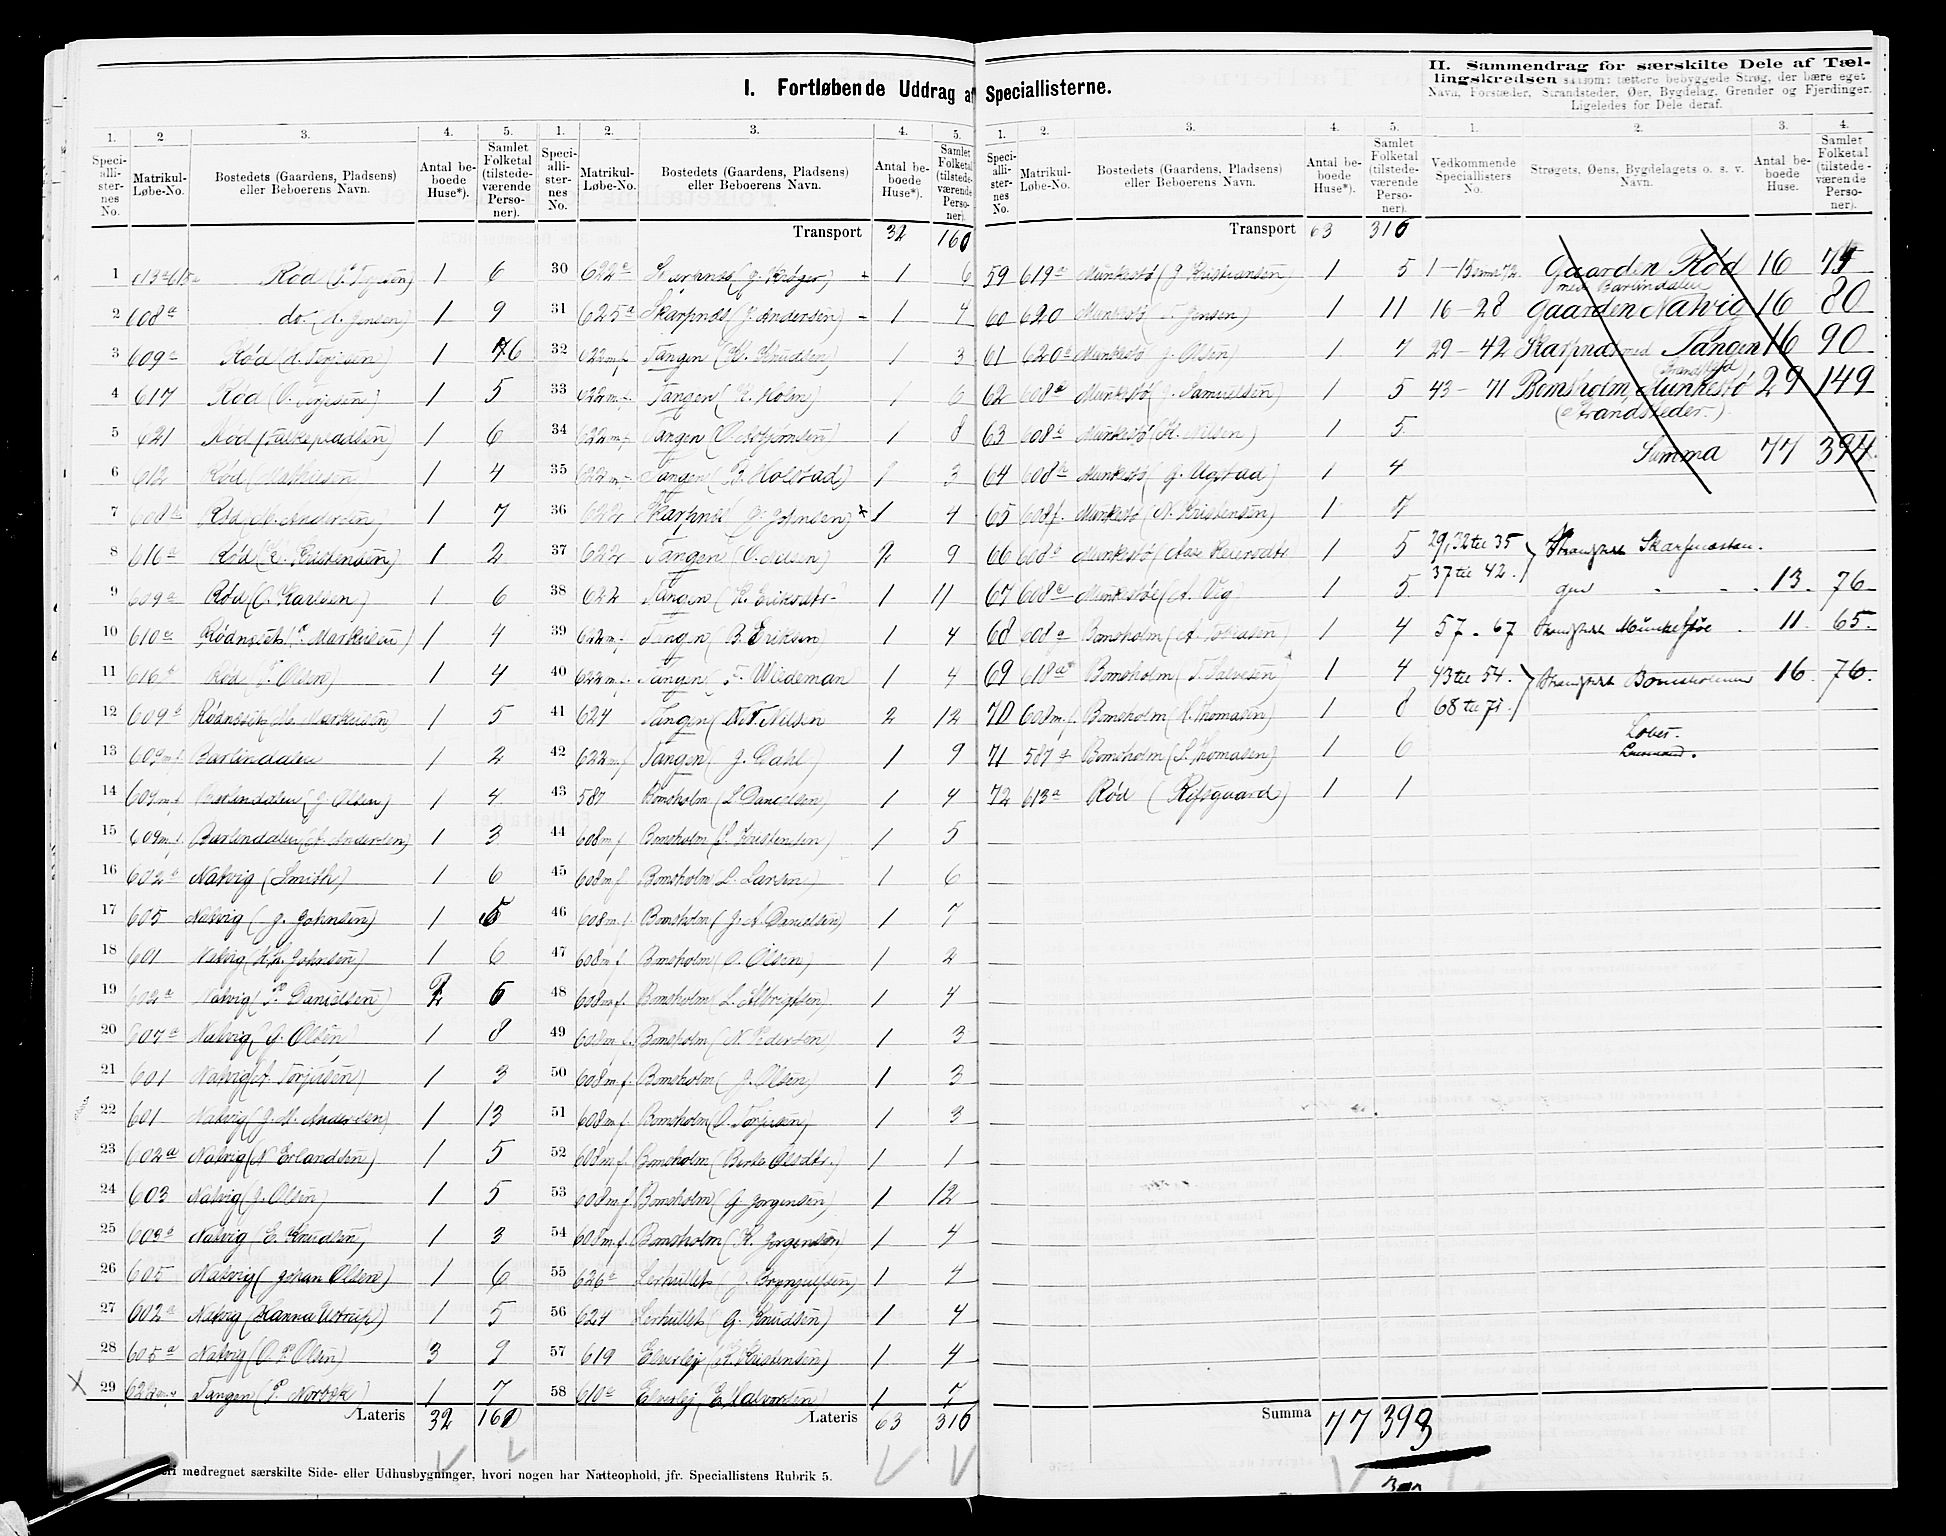 I. Fortløbende Uddrag af Speciallisterne.
II. Sammendrag for særskilte Dele af Tællingskredsen saasom: tættere bebyggede Strøg, der bære eget Navn, Forstæder, Strandsteder, Øer, Bygdelag, Grender og Fjerdinger. Ligeledes for Dele deraf.
1. 2 3. 4. 5.
Speciallisternes No. Matrikul-Løbe-No. Bostedets (Gaardens, Pladsens) eller Beboerens Navn. Antal beboede Huse*). Samlet Folketal (tilstedeværende Personer).
1 Rød 1 6
2 608a do. (A. Jensen) 1 9
3 609a Rød (A. Terjesen) 1 6
4 617 Rød (O. Terjesen) 1 5
5 621 Rød (Falkepladsen) 1 6
6 612 Rød (Mathiesen) 1 4
7 608 Rød (M. Andersen) 1 7
8 616a Rød (K. Kristensen) 1 2
9 609a Rød (O. Karlsen) 1 6
10 610a Rødnæset (P. Markusen) 1 4
11 616b Rød (P. Olsen) 1 4
12 609b Rødnæset (M. Markusen) 1 5
13 609m.f. Barlindalen 1 2
14 609m.f. Barlindalen (J. Olsen) 1 4
15 609m.f. Barlindalen (A. Andersen) 1 3
16 602b Natvig (Smith) 1 6
17 605 Natvig (J. Johnsen) 1 5
18 601 Natvig (K. K. Johnsen) 1 6
19 602a Natvig (P. Danielsen) 2 5
20 607a Natvig (J. Olsen) 1 8
21 601 Natvig (J. Torjusen) 1 3
22 601 Natvig (J. M. Andersen) 1 13
23 602a Natvig (N Erlandsen) 1 5
24 603 Natvig (J. Olsen) 1 5
25 603b Natvig (E. Knudsen) 1 3
26 605 Natvig (Johan Olsen) 1 6
27 602a Natvig (Hanna Ustrup) 1 5
28 605a Natvig (O. P. Olsen) 3 9
29 622m.f. Tangen (P. Norbek) 1 7
Lateris 32 160
1. 2. 3. 4. 5.
Speciallisternes No. Matrikul-Løbe-No. Bostedets (Gaardens, Pladsens) eller Beboerens Navn. Antal beboede Huse*). Samlet Folketal (tilstedeværende Personer).
Transport 32 160
30 622a Skarpnæs (J. Krøger) 1 6
31 625a Skarpnæs (J. Andersen) 1 4
32 622m.f. Tangen (K. Knudsen) 1 3
33 622m.f. Tangen (K. Holm) 1 6
34 622m.f. Tangen (O. Asbjørnsen) 1 8
35 622m.f. Tangen (B. Holstad) 1 3
36 622 Skarpnæs (J. Johnsen) 1 4
37 622 Tangen (O. Nilsen) 2 9
38 622 Tangen (K. Eriksdtr.) 1 11
39 622m.f. Tangen (B. Eriksen) 1 4
40 622m.f. Tangen (F. Wiideman) 1 4
41 624 Tangen (N. T. Nilsen 2 12
42 622m.f. Tangen (J. Dahl) 1 9
43 587 Bomsholm (L Danielsen) 1 4
44 608m.f. Bomsholm (S. Kristensen) 1 5
45 608m.f. Bomsholm (L. Larsen) 1 6
46 608m.f. Bomsholm (J. A. Danielsen) 1 7
47 608m.f. Bomsholm (O. Olsen) 1 2
48 608m.f. Bomsholm (L. Albrigtsen) 1 4
49 608m.f. Bomsholm (N. Pedersen) 1 3
50 608m.f. Bomsholm (J. Olsen) 1 3
51 608m.f. Bomsholm (O. Torjusen) 1 3
52 608m.f. Bomsholm (Berte Olsdtr.) 1 1
53 608m.f. Bomsholm (J Jorgensen) 1 12
54 608m.f. Bomsholm (K. Jorgensen 1 4
55 626a Lerhullet (J. Brynjulfsen) 1 4
56 624 Lerhullet (G. Knudsen) 1 4
57 619 Elverlej (K. Kristensen) 1 4
58 610a Elverlej (E. Halvorsen) 1 7
Lateris 63 316
1. 2. 3. 4. 5.
Speciallisternes No. Matrikul-Løbe-No. Bostedets (Gaardens, Pladsens) eller Beboerens Navn. Antal beboede Huse*). Samlet Folketal (tilstedeværende Personer).
Transport 63 316
59 619a Munkestø (J Kristiansen) 1 5
60 620 Munkestø (T. Jensen) 1 11
61 620 Munkestø J. Olsen) 1 7
62 608 Munkestø (J. Samuelsen) 1 5
63 608 Munkestø (K. Nilsen) 1 5
64 608 Munkestø (J. Agstad) 1 4
65 608f. Munkestø (N. Kristensen) 1 7
66 608 Munkestø (Aase Reiersdtr. 1 5
67 608 Munkestø (A. Vig) 1 5
68 608 Bomsholm (A. Tobiasen) 1 4
69 618a Bomsholm (T. Salvesen 1 4
70 608m.f. Bomsholm (K. Thomasen) 1 8
71 587 Bomsholm (S. Thomasen) 1 6
72 613a Rød (Rifsgaard) 1 1
Summa 77 393
1. 2. 3. 4.
Vedkommende Speciallisters No. Strøgets, Øens, Bygdelagets o. s. v. Navn. Antal beboede Huse. Samlet Folketal (tilstedeværende Personer).
1-15 samt 72. Gaarden Rød 16 75
med Barlindalen
16-28 Gaarden Natvig 16 80
29-42 Skarpnæs med Tangen 16 90
(Strandsted)
43-71 Bomsholm, Munkestø 29 149
(Strandsteder.)
Summa 77 394.
29, 32 til 35 Strandstedet Skarpnæstan-
37 til 42. gen 13. 76
57-67 Strandstedet Munkestøe 11. 65.
43 til 54. Strandstedet Bomsholmen 16. 76.
68 til 71.
medregnet særskilte Side- eller Udhusbygninger, hvori nogen har Natteophold, jfr. Speciallistens Rubrik 5.